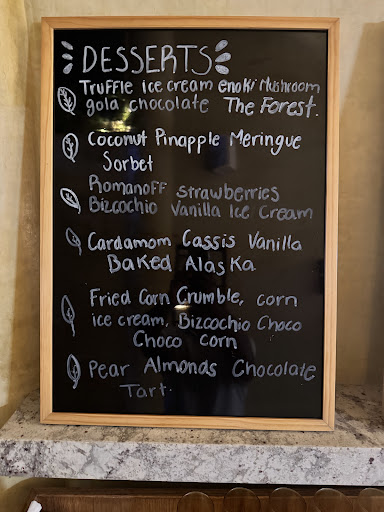 DESSERTS
Truffle ice cream enoki Mushroom
gola chocolate The Forest.
Coconut Pinapple Meringue
Sorbet
Romanoff strawberries
Bizcochio Vanilla Ice Cream
Cardamom Cassis Vanilla
Baked Alaska
Fried Corn Crumble, corn
ice cream, Bizcochio Choco
Choco corn
Pear Almonds Chocolate
Tart.